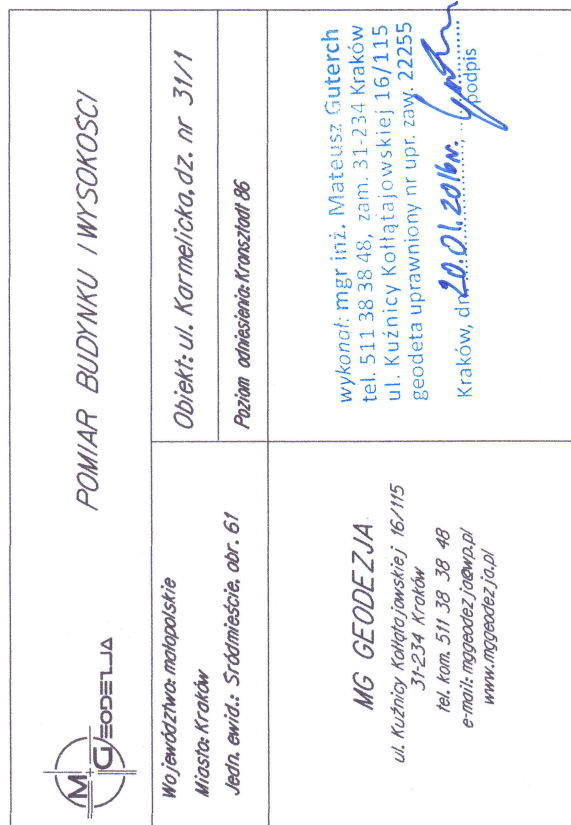 MG GEODEZJA
POMIAR BUDYNKU I WYSOKOŚCI
Województwo: małopolskie
Miasto: Kraków
Jedn. ewid.: Śródmieście, obr. 61
Obiekt: ul. Karmelicka, dz. nr 31/1
Poziom odniesienia: Kronsztadt 86
MG GEODEZJA
ul. Kuźnicy Kołłątajowskiej 16/115
31-234 Kraków
tel. kom. 511 38 38 48
e-mail: mggeodezja@wp.pl
www.mggeodezja.pl
wykonał: mgr inż. Mateusz Guterch
tel. 511 38 38 48, zam. 31-234 Kraków
ul. Kuźnicy Kołłątajowskiej 16/115
geodeta uprawniony nr upr. zaw. 22255
Kraków, dn. 20.01.2016r.
podpis